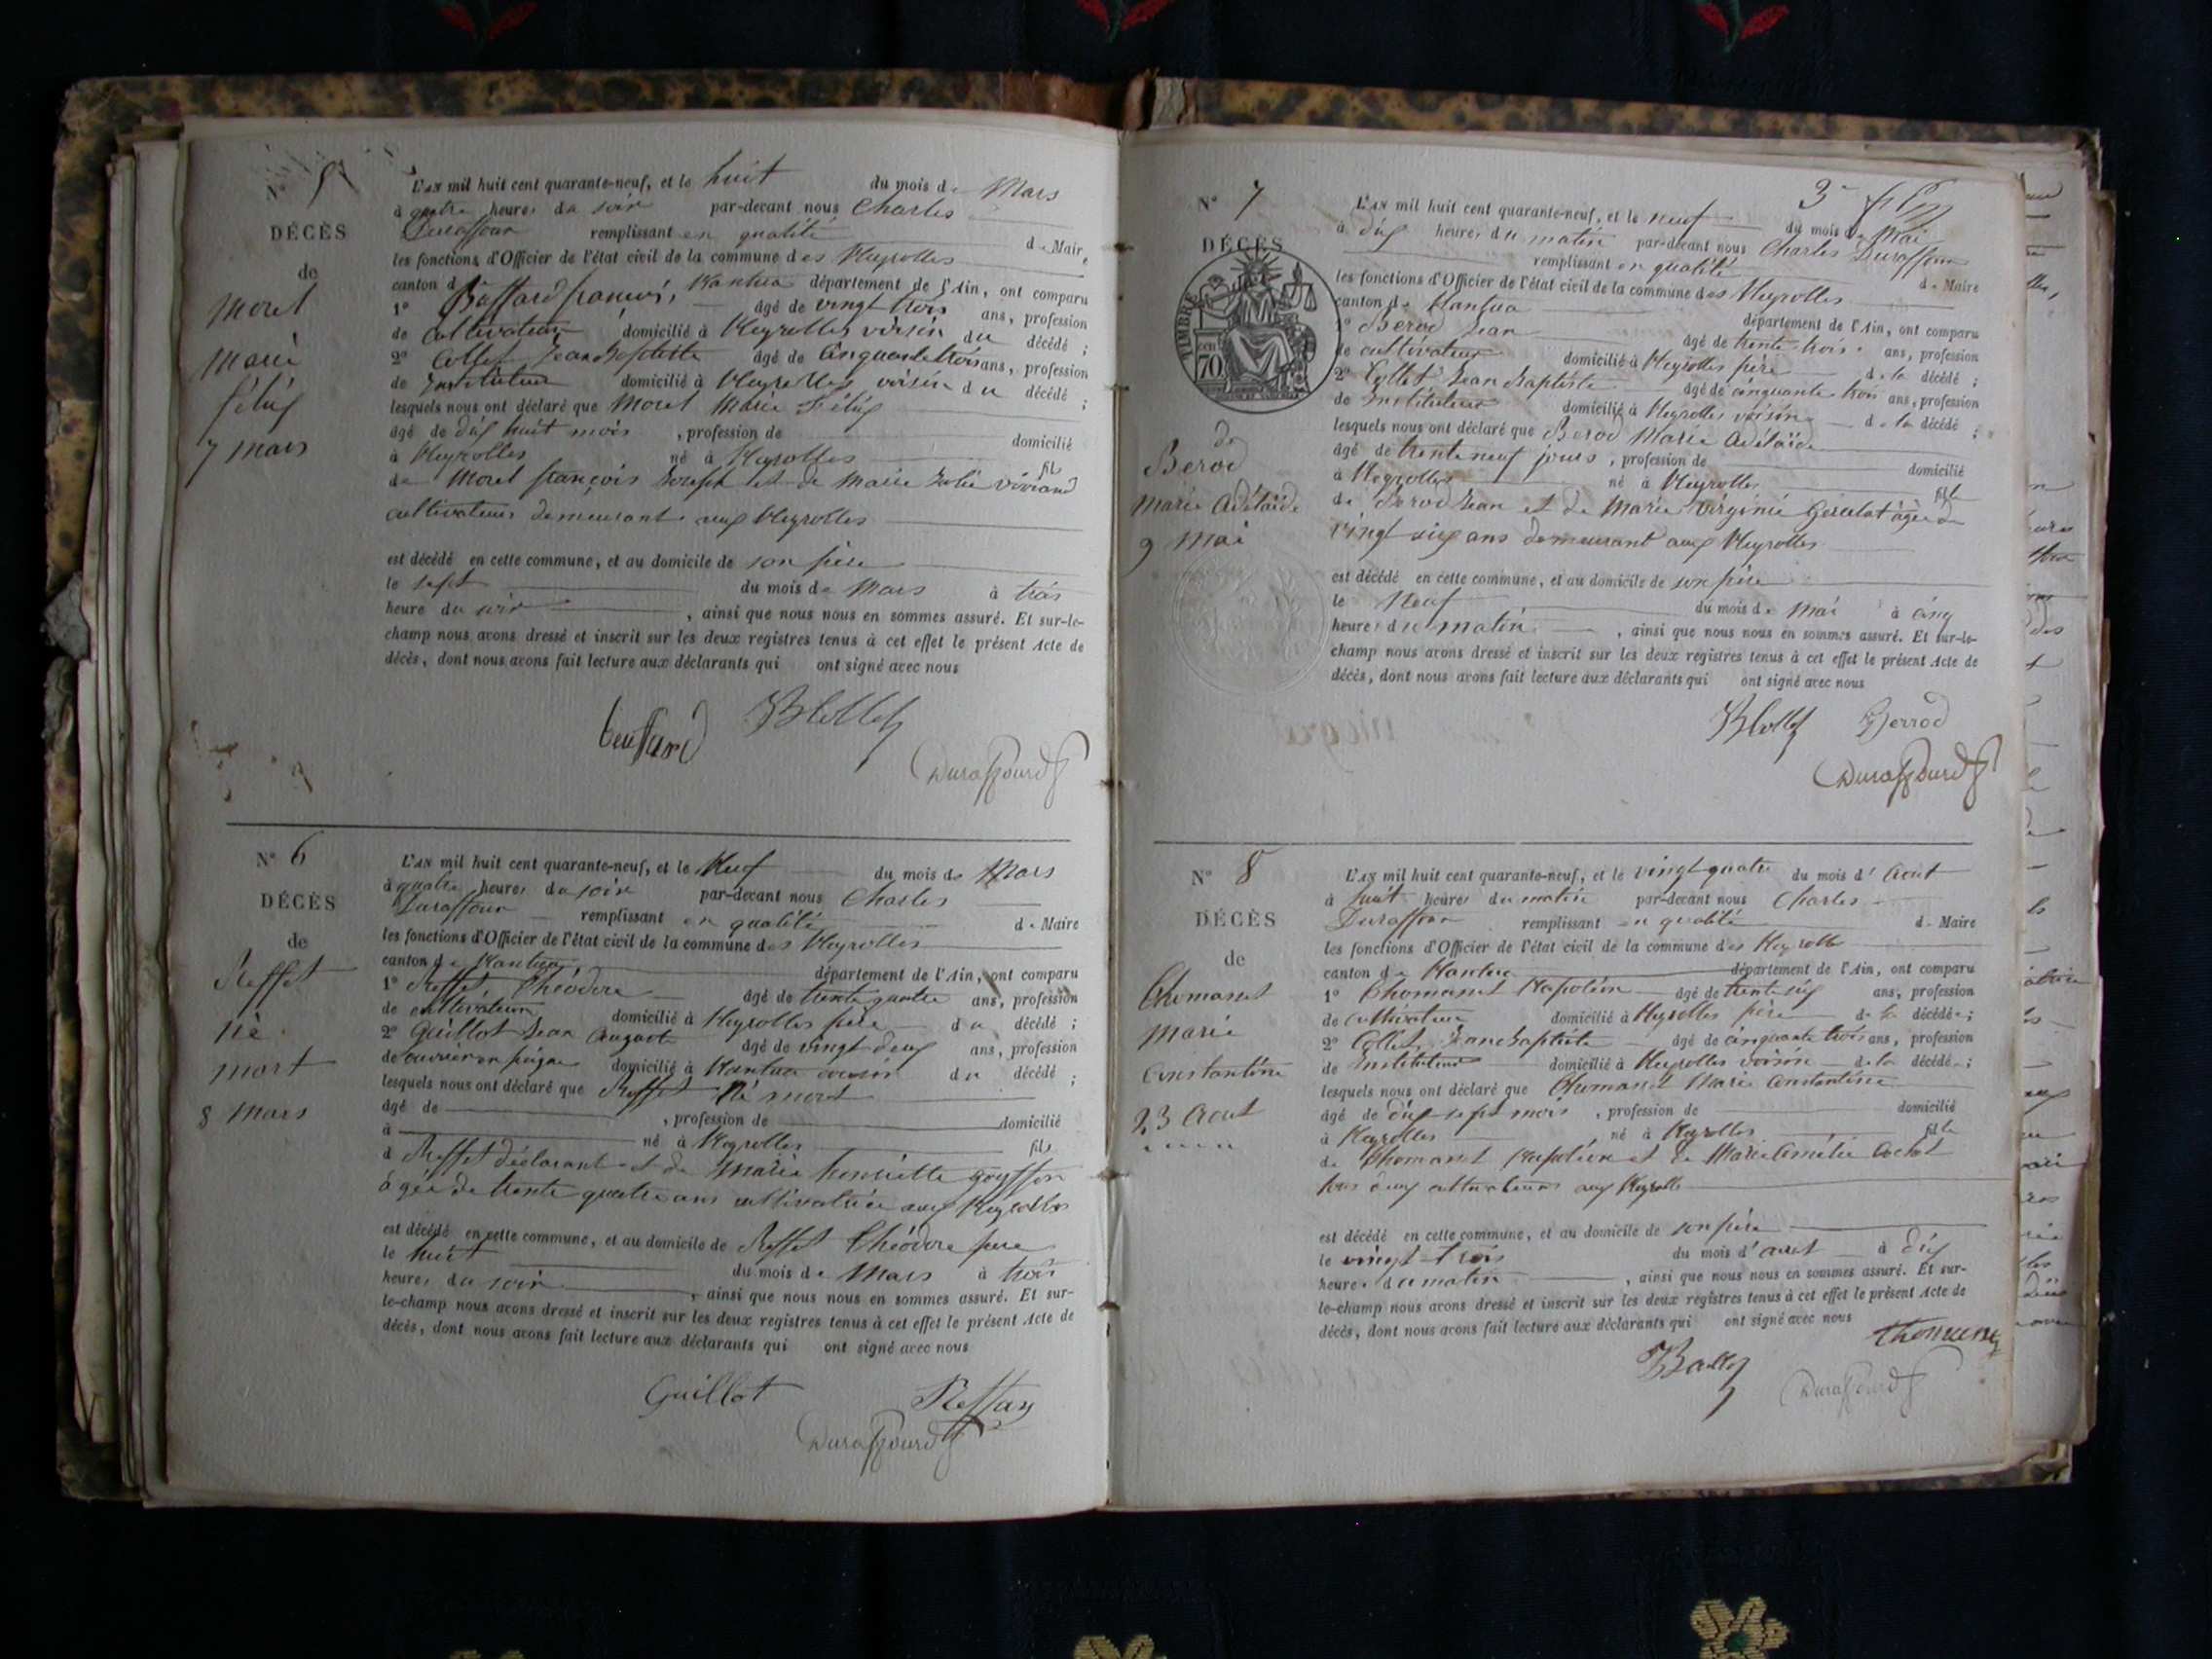 N° 5
DÉCÈS
de
Morel
Marie
Félix
7 mars
L'AN mil huit cent quarante-neuf, et le huit du mois de Mars
à quatre heures du soir par-devant nous Charles
Duraffour remplissant en qualité de Maire
les fonctions d'Officier de l'état civil de la commune des Neyrolles
canton de Nantua département de l'Ain, ont comparu
1° Buffard françois, âgé de vingt trois ans, profession
de cultivateur domicilié à Neyrolles voisin du décédé ;
2° Collet Jean Baptiste âgé de cinquante trois ans, profession
de Instituteur domicilié à Neyrolles voisin du décédé ;
lesquels nous ont déclaré que Morel Marie Félix
âgé de dix huit mois , profession de domicilié
à Neyrolles né à Neyrolles fils
de Morel françois Joseph et de Marie Julie Viviand
cultivateurs demeurant aux Neyrolles
est décédé en cette commune, et au domicile de son père
le sept du mois de Mars à trois
heure du soir , ainsi que nous nous en sommes assuré. Et sur-le-
champ nous avons dressé et inscrit sur les deux registres tenus à cet effet le présent Acte de
décès, dont nous avons fait lecture aux déclarants qui ont signé avec nous
buffard JBCollet
Duraffourd
N° 6
DÉCÈS
de
Reffet
né
mort
8 mars
L'AN mil huit cent quarante-neuf, et le Neuf du mois de Mars
à quatre heures du soir par-devant nous Charles
Duraffour remplissant en qualité de Maire
les fonctions d'Officier de l'état civil de la commune des Neyrolles
canton de Nantua département de l'Ain, ont comparu
1° Reffet, Théodore âgé de trente quatre ans, profession
de cultivateur domicilié à Neyrolles père du décédé ;
2° Guillot Jean August âgé de vingt deux ans, profession
de ouvrier en peigne domicilié à Nantua cousin du décédé ;
lesquels nous ont déclaré que Reffet Né mort
âgé de , profession de domicilié
à né à Neyrolles fils
d Reffet déclarant et de Marie henriette
âgée de trente quatre ans cultivatrice aux Neyrolles
est décédé en cette commune, et au domicile de Reffet Théodore père
le huit du mois de Mars à trois
heures du soir , ainsi que nous nous en sommes assuré. Et sur-
le-champ nous avons dressé et inscrit sur les deux registres tenus à cet effet le présent Acte de
décès, dont nous avons fait lecture aux déclarants qui ont signé avec nous
Guillot Reffay
Duraffourd
3e
N° 7
DÉCÈS
TIMBRE
70
de
Berod
Marie Adélaïde
9 Mai
L'AN mil huit cent quarante-neuf, et le neuf du mois de Mai
à dix heures du matin par-devant nous Charles Duraffour
remplissant en qualité de Maire
les fonctions d'Officier de l'état civil de la commune des Neyrolles
canton de Nantua département de l'Ain, ont comparu
1° Berod Jean âgé de trente trois ans, profession
de cultivateur domicilié à Neyrolles père de la décédé ;
2° Collet Jean Baptiste âgé de cinquante trois ans, profession
de Instituteur domicilié à Neyrolles voisin de la décédé ;
lesquels nous ont déclaré que Berod Marie Adélaïde
âgé de trente neuf jours , profession de domicilié
à Neyrolles né à Neyrolles fille
de Berod Jean et de Marie Virginie âgée de
vingt six ans demeurant aux Neyrolles
est décédé en cette commune, et au domicile de son père
le Neuf du mois de Mai à cinq
heures du matin , ainsi que nous nous en sommes assuré. Et sur-le-
champ nous avons dressé et inscrit sur les deux registres tenus à cet effet le présent Acte de
décès, dont nous avons fait lecture aux déclarants qui ont signé avec nous
JBCollet Berrod
Duraffourd
N° 8
DÉCÈS
de
Thomanet
Marie
Constantine
23 Aout
L'AN mil huit cent quarante-neuf, et le vingt quatre du mois d' Aout
à huit heures du matin par-devant nous Charles
Duraffour remplissant en qualité de Maire
les fonctions d'Officier de l'état civil de la commune des Neyrolles
canton de Nantua département de l'Ain, ont comparu
1° Thomanet Napoléon âgé de trente six ans, profession
de cultivateur domicilié à Neyrolles père de la décédée ;
2° Collet Jean Baptiste âgé de cinquante trois ans, profession
de Instituteur domicilié à Neyrolles voisin de la décédée ;
lesquels nous ont déclaré que Thomanet Marie Constantine
âgé de dix sept mois , profession de domicilié
à Neyrolles né à Neyrolles fille
de Thomanet Napoléon et de Marie Amélie
tous deux cultivateurs aux Neyrolles
est décédé en cette commune, et au domicile de son père
le vingt trois du mois d' aout à dix
heures du matin , ainsi que nous nous en sommes assuré. Et sur-
le-champ nous avons dressé et inscrit sur les deux registres tenus à cet effet le présent Acte de
décès, dont nous avons fait lecture aux déclarants qui ont signé avec nous
Duraffourd